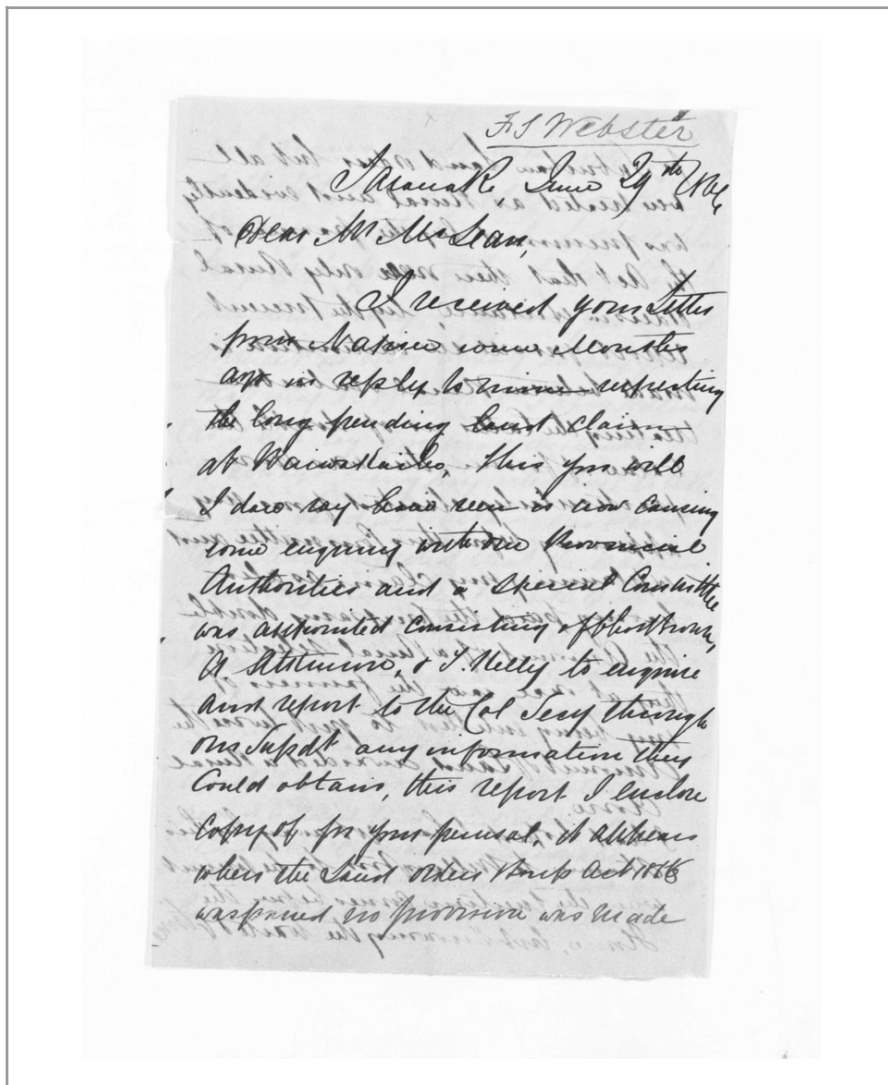 F S Webster
Taranaki June 29th
Dear Mr McLean,
I received your Letter
from Napier some Months
ago in reply to mine respecting
the long pending Land claim
at Waiwakaiho, this you will
I dare say have seen is now causing
some enquiry with our Provincial
Authorities and a Special Committee
was appointed consisting of Brown,
A Atkinson, & T. Kelly to enquire
and report to the Col Secy through
our Supdt any information they
Could obtain, this report I enclose
Copy of for your perusal, it appears
when the Land Orders Scrip Act
was passed no provision was made